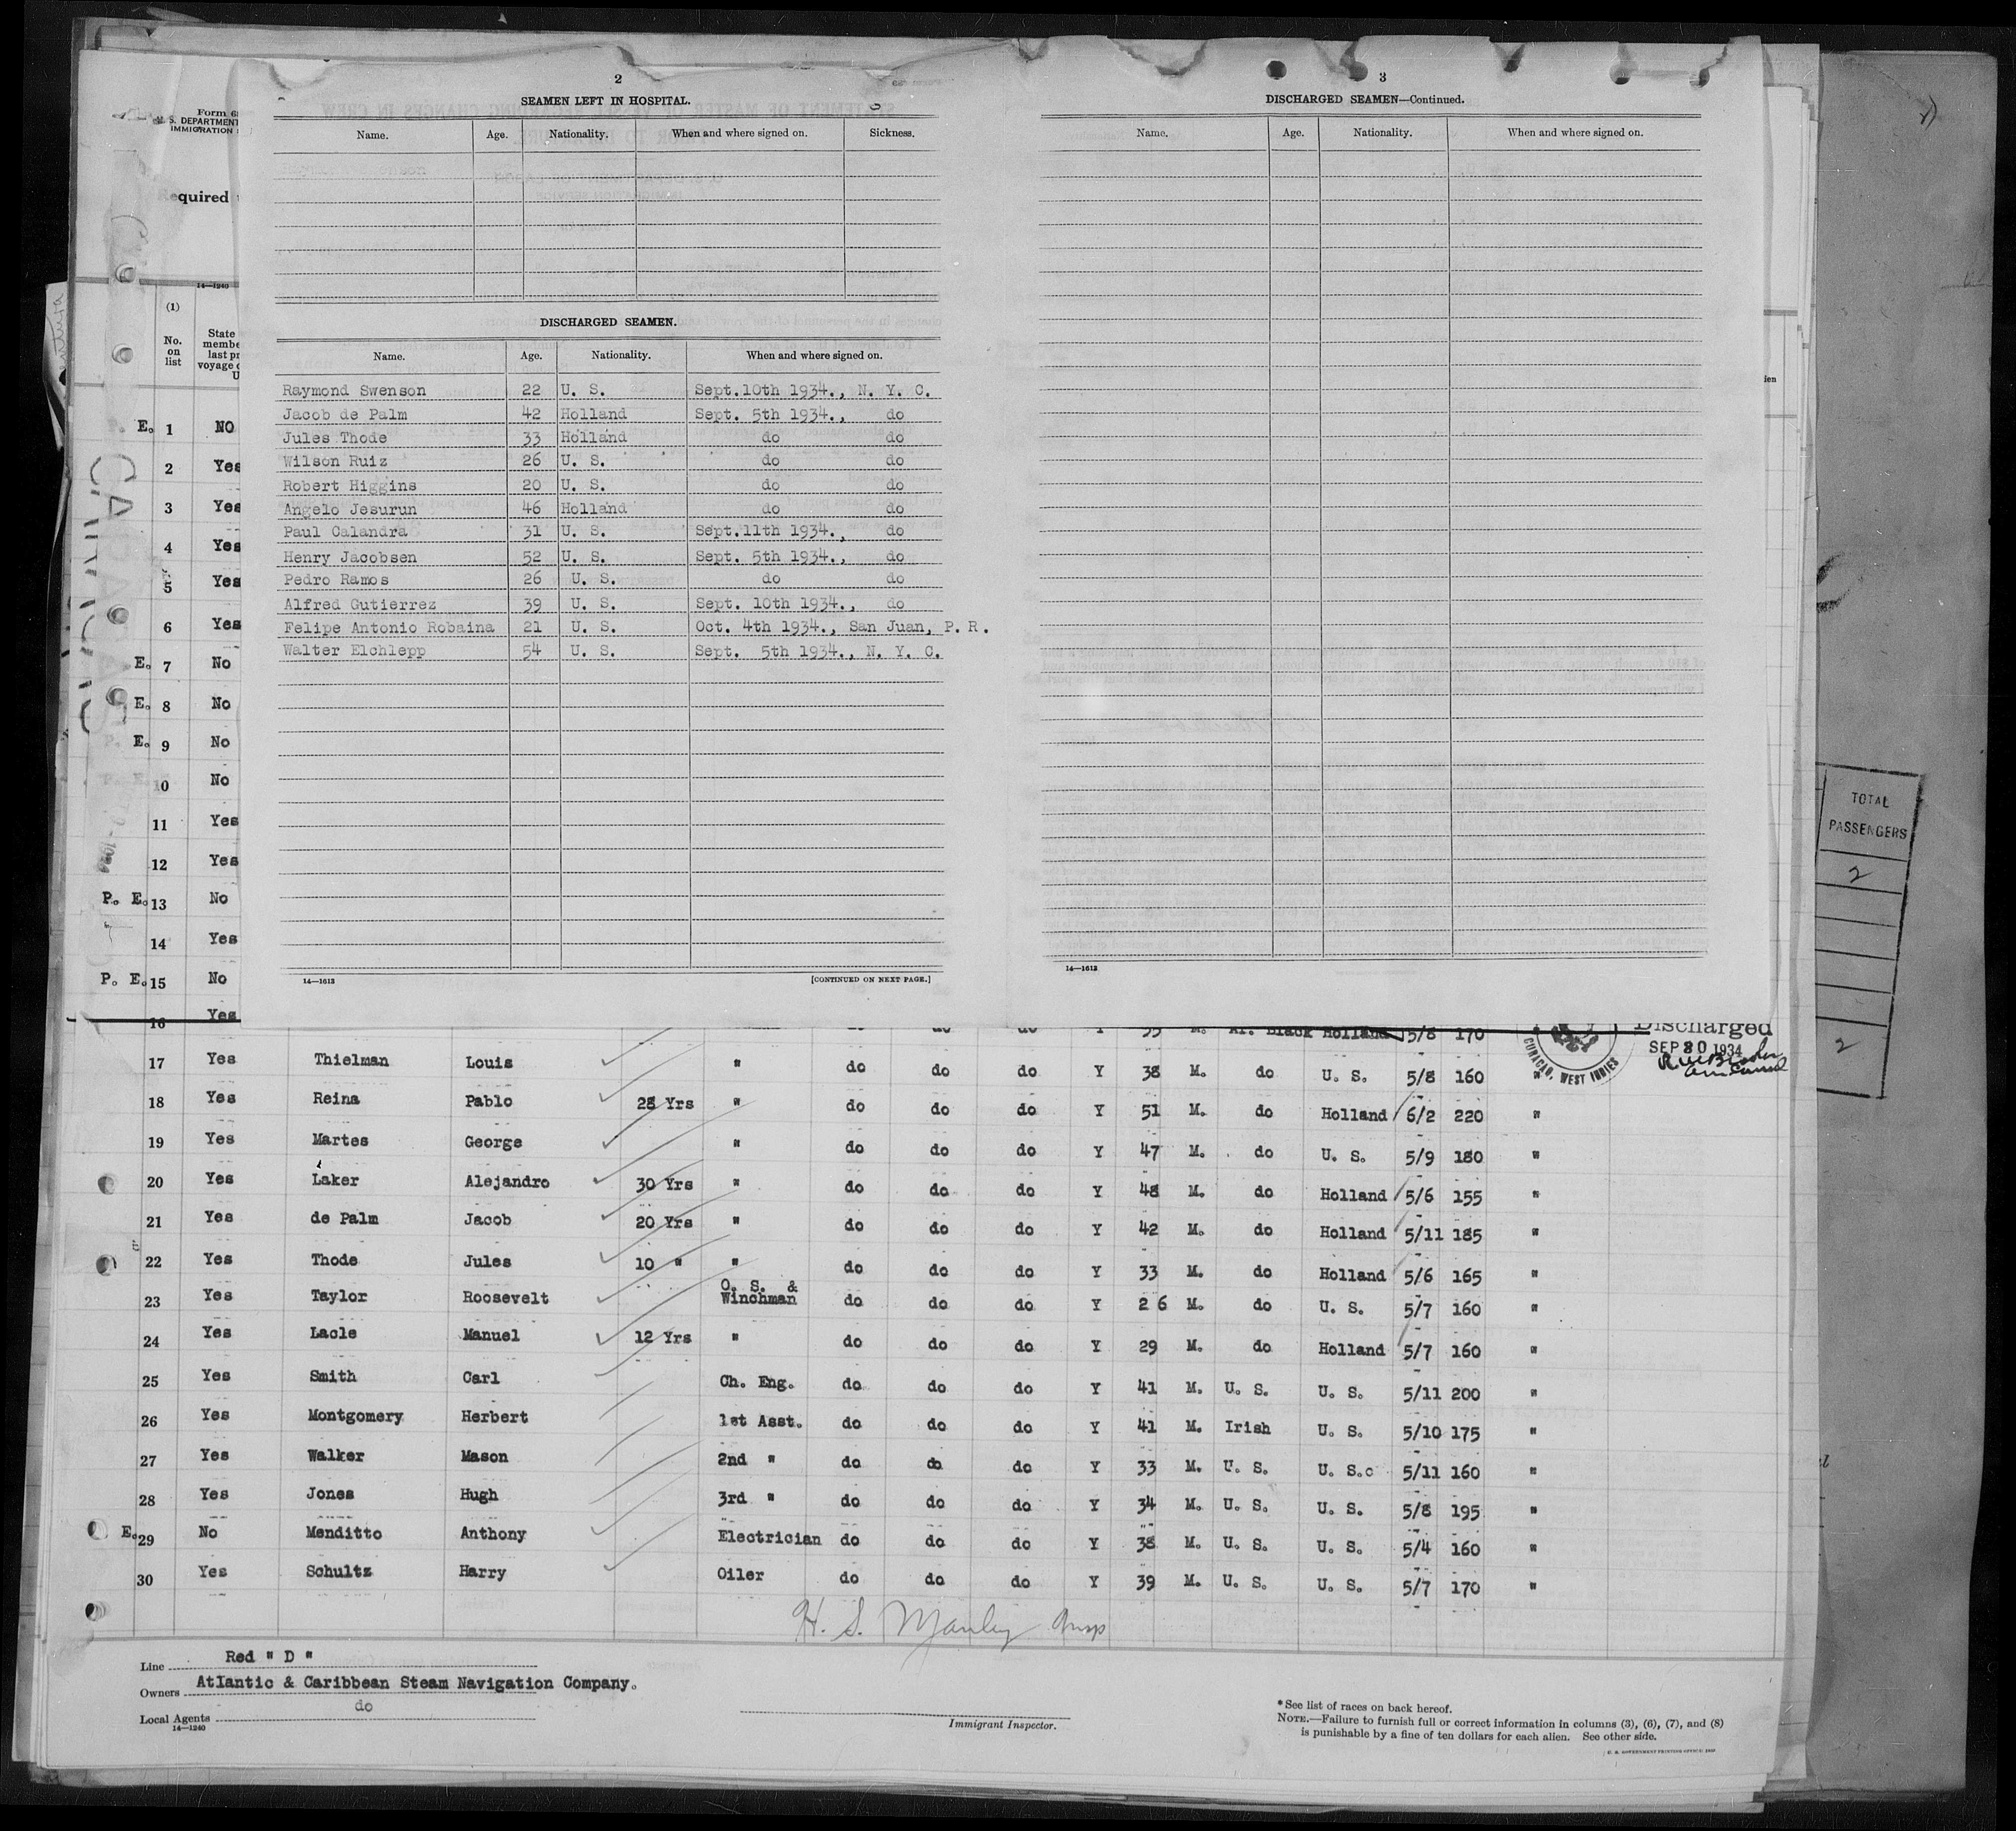 2
SEAMEN LEFT IN HOSPITAL.
Name. Age. Nationality. When and where signed on. Sickness.
DISCHARGED SEAMEN.
Name. Age. Nationality. When and where signed on.
Raymond Swenson 22 U. S. Sept.10th 1934., N. Y. C.
Jacob de Palm 42 Holland Sept. 5th 1934., do
Jules Thode 33 Holland do do
Wilson Ruiz 26 U. S. do do
Robert Higgins 20 U. S. do do
Angelo Jesurun 46 Holland do do
Paul Calandra 31 U. S. Sept.11th 1934., do
Henry Jacobsen 52 U. S. Sept. 5th 1934., do
Pedro Ramos 26 U. S. do do
Alfred Gutierrez 39 U. S. Sept. 10th 1934., do
Felipe Antonio Robaina 21 U. S. Oct. 4th 1934., San Juan, P. R.
Walter Elchlepp 54 U. S. Sept. 5th 1934., N. Y. C.
14—1613 [CONTINUED ON NEXT PAGE.]
3
DISCHARGED SEAMEN—Continued.
Name. Age. Nationality. When and where signed on.
14—1613
Form 68
U. S. DEPARTMENT
IMMIGRATION
Required
14—1240
(1)
No. on list
State
membe
last pr
voyage
U
E. 1 NO
2 Yes
3 Yes
4 Yes
5 Yes
6 Yes
E. 7 No
E. 8 No
P. E. 9 No
P. E. 10 No
11 Yes
12 Yes
P. E. 13 No
14 Yes
P. E. 15 No
16 Yes do do do Y 35 M. Af. Black Holland 5/8 170
Discharged
SEP 30 1934
CURACAO, WEST INDIES
17 Yes Thielman Louis " do do do Y 38 M. do U. S. 5/8 160 "
18 Yes Reina Pablo 28 Yrs " do do do Y 51 M. do Holland 6/2 220 "
19 Yes Martes George " do do do Y 47 M. do U. S. 5/9 180 "
20 Yes Laker Alejandro 30 Yrs " do do do Y 48 M. do Holland 5/6 155 "
21 Yes de Palm Jacob 20 Yrs " do do do Y 42 M. do Holland 5/11 185 "
22 Yes Thode Jules 10 " " do do do Y 33 M. do Holland 5/6 165 "
23 Yes Taylor Roosevelt O. S. & Winchman do do do Y 2 6 M. do U. S. 5/7 160 "
24 Yes Lacle Manuel 12 Yrs " do do do Y 29 M. do Holland 5/7 160 "
25 Yes Smith Carl Ch. Eng. do do do Y 41 M. U. S. U. S. 5/11 200 "
26 Yes Montgomery Herbert 1st Asst. do do do Y 41 M. Irish U. S. 5/10 175 "
27 Yes Walker Mason 2nd " do do do Y 33 M. U. S. U. S.c 5/11 160 "
28 Yes Jones Hugh 3rd " do do do Y 34 M. U. S. U. S. 5/8 195 "
E. 29 No Menditto Anthony Electrician do do do Y 38 M. U. S. U. S. 5/4 160 "
30 Yes Schultz Harry Oiler do do do Y 39 M. U. S. U. S. 5/7 170 "
H. S. Manley Insp
Line Red " D "
Owners Atlantic & Caribbean Steam Navigation Company.
Local Agents do
14—1240
Immigrant Inspector.
*See list of races on back hereof.
NOTE.—Failure to furnish full or correct information in columns (3), (6), (7), and (8)
is punishable by a fine of ten dollars for each alien. See other side.
TOTAL
PASSENGERS
2
2